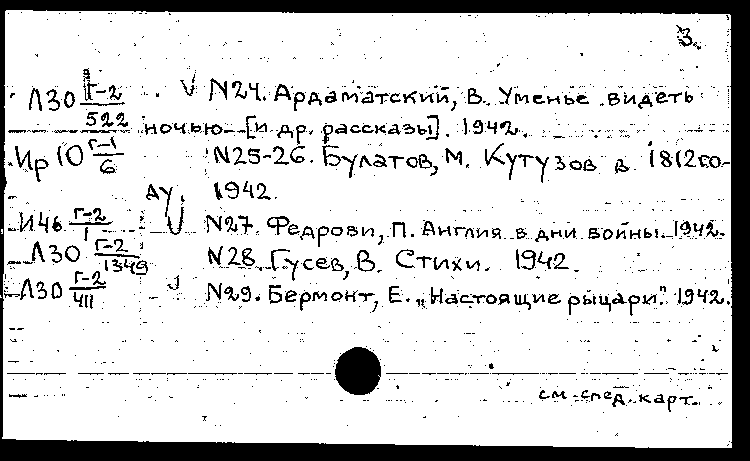 3.
Л30 Г-2/522 √ N24. Ардаматский, В. Уменье видеть
ночью [и др. рассказы]. 1942.
Ир10 Г-1/6 N25-26. Булатов, М. Кутузов в 1812 го-
АУ. 1942.
И46 Г-2/1 √ N27. Федрови, П. Англия в дни войны. 1942.
Л30 Г-2/1349 N28. Гусев, В. Стихи. 1942.
Л30 Г-2/411 √ N29. Бермонт, Е. „Настоящие рыцари". 1942.
см. след. карт.